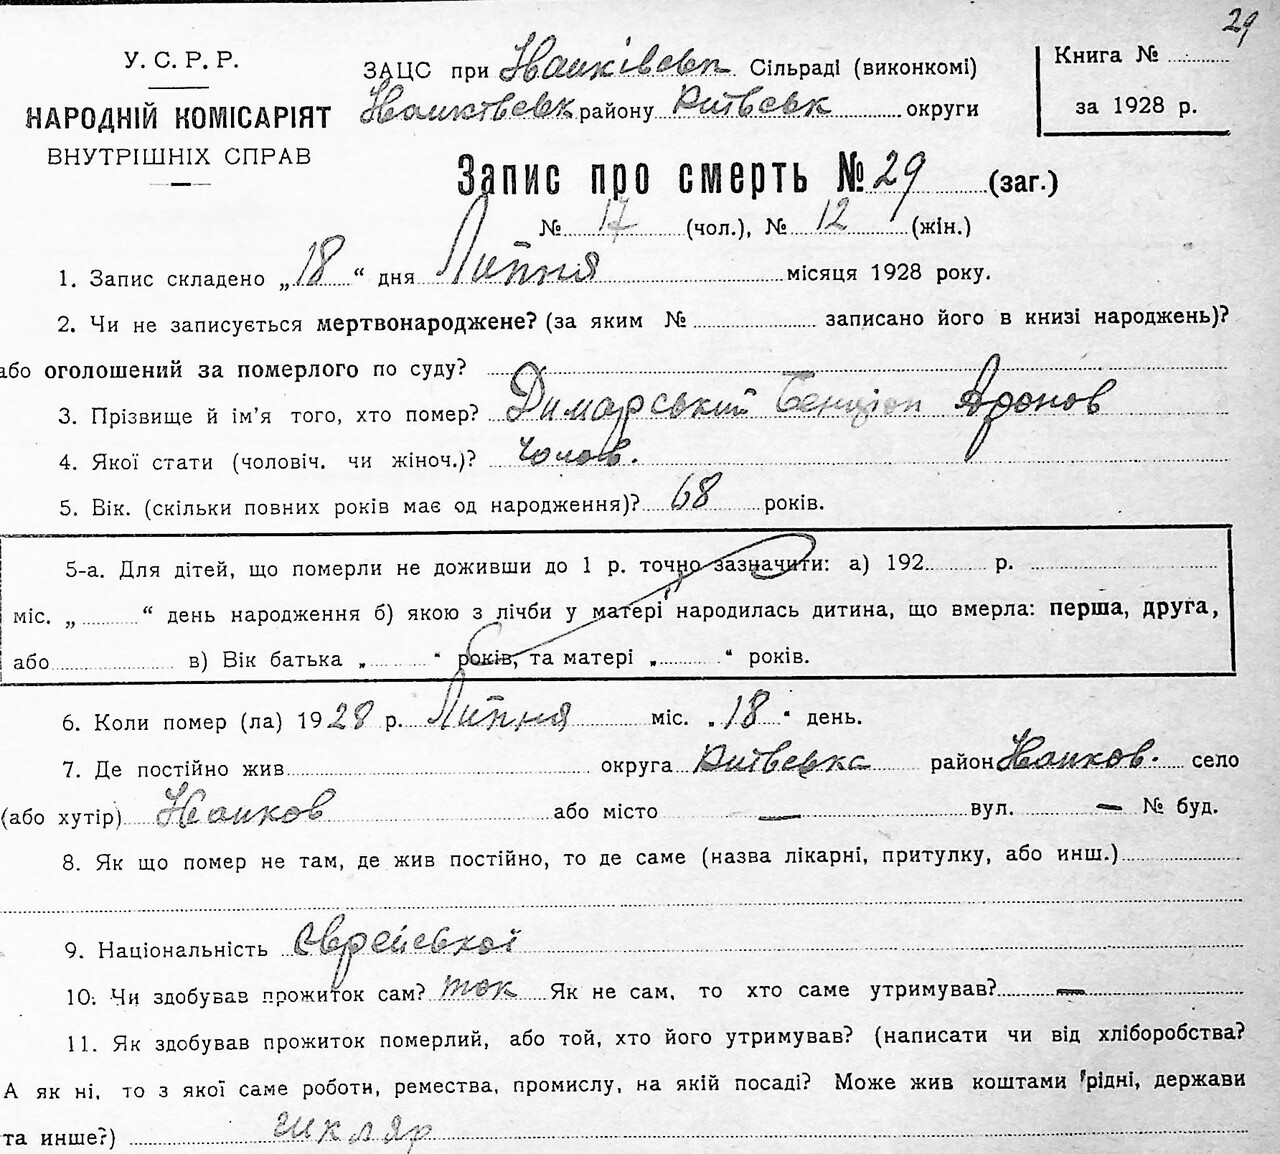 29
У. С. Р. Р.
НАРОДНІЙ КОМІСАРІЯТ
ВНУТРІШНІХ СПРАВ
ЗАЦС при Сільраді (виконкомі)
району округи
Книга №
за 1928 р.
Запис про смерть № 29 (заг.)
№ 17 (чол.), № 12 (жін.)
1. Запис складено „18“ дня Липня місяця 1928 року.
2. Чи не записується мертвонароджене? (за яким № записано його в книзі народжень)?
або оголошений за померлого по суду?
3. Прізвище й ім'я того, хто помер? Димарський Бенціон Аронов
4. Якої стати (чоловіч. чи жіноч.)? чолов.
5. Вік. (скільки повних років має од народження)? 68 років.
5-а. Для дітей, що померли не доживши до 1 р. точно зазначити: а) 192 р.
міс. „ “ день народження б) якою з лічби у матері народилась дитина, що вмерла: перша, друга,
або в) Вік батька „ “ років, та матері „ “ років.
6. Коли помер (ла) 1928 р. Липня міс. „18“ день.
7. Де постійно жив округа район село
(або хутір) або місто — вул. — № буд.
8. Як що помер не там, де жив постійно, то де саме (назва лікарні, притулку, або инш.)
9. Національність Єврейської
10. Чи здобував прожиток сам? так Як не сам, то хто саме утримував? —
11. Як здобував прожиток померлий, або той, хто його утримував? (написати чи від хліборобства?
А як ні, то з якої саме роботи, ремества, промислу, на якій посаді? Може жив коштами рідні, держави
та инше?)